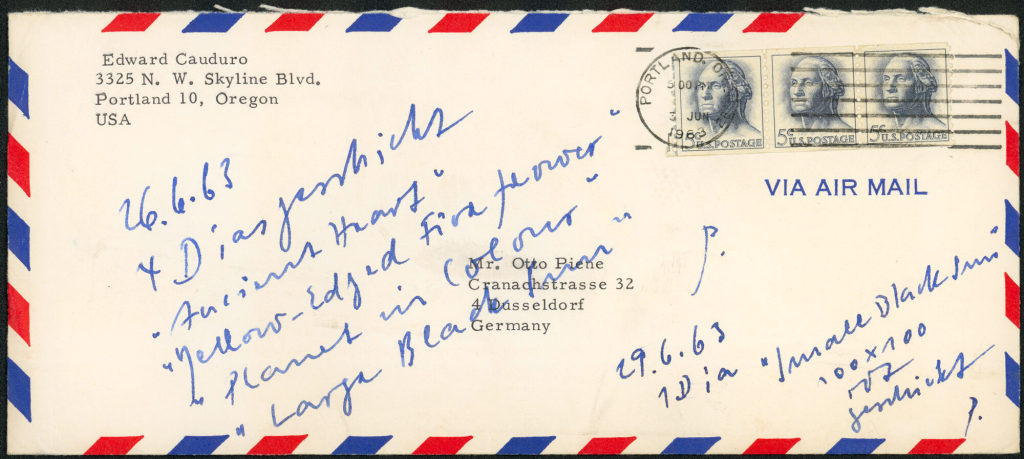 Edward Cauduro
3325 N. W. Skyline Blvd.
Portland 10, Oregon
USA
PORTLAND, OR
3 JUN
1963
5¢ U.S. POSTAGE
5¢ U.S. POSTAGE
5¢ U.S. POSTAGE
VIA AIR MAIL
Mr. Otto Piene
Cranachstrasse 32
4 Düsseldorf
Germany
26.6.63
4 Dias geschickt
"Ancient Heart"
"Yellow-Edged Fire flower"
"Planet in Colour"
"Large Black Sun"
P.
29.6.63
1 Dia "Small Black Sun"
100 x 100
geschickt
P.